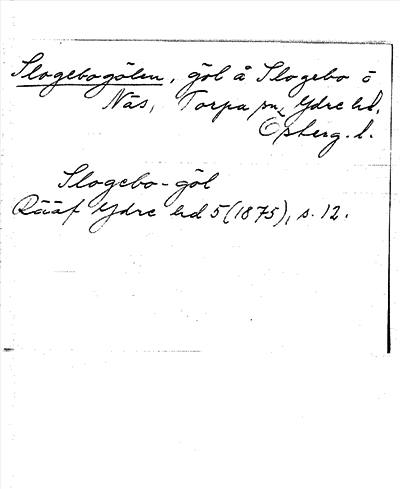 Slogebogölen, göl å Slogebo ö
Näs, Torpa sn, Ydre hd,
Österg. l.
Slogebo-göl
Rääf Ydre hd 5 (1875), s. 12.